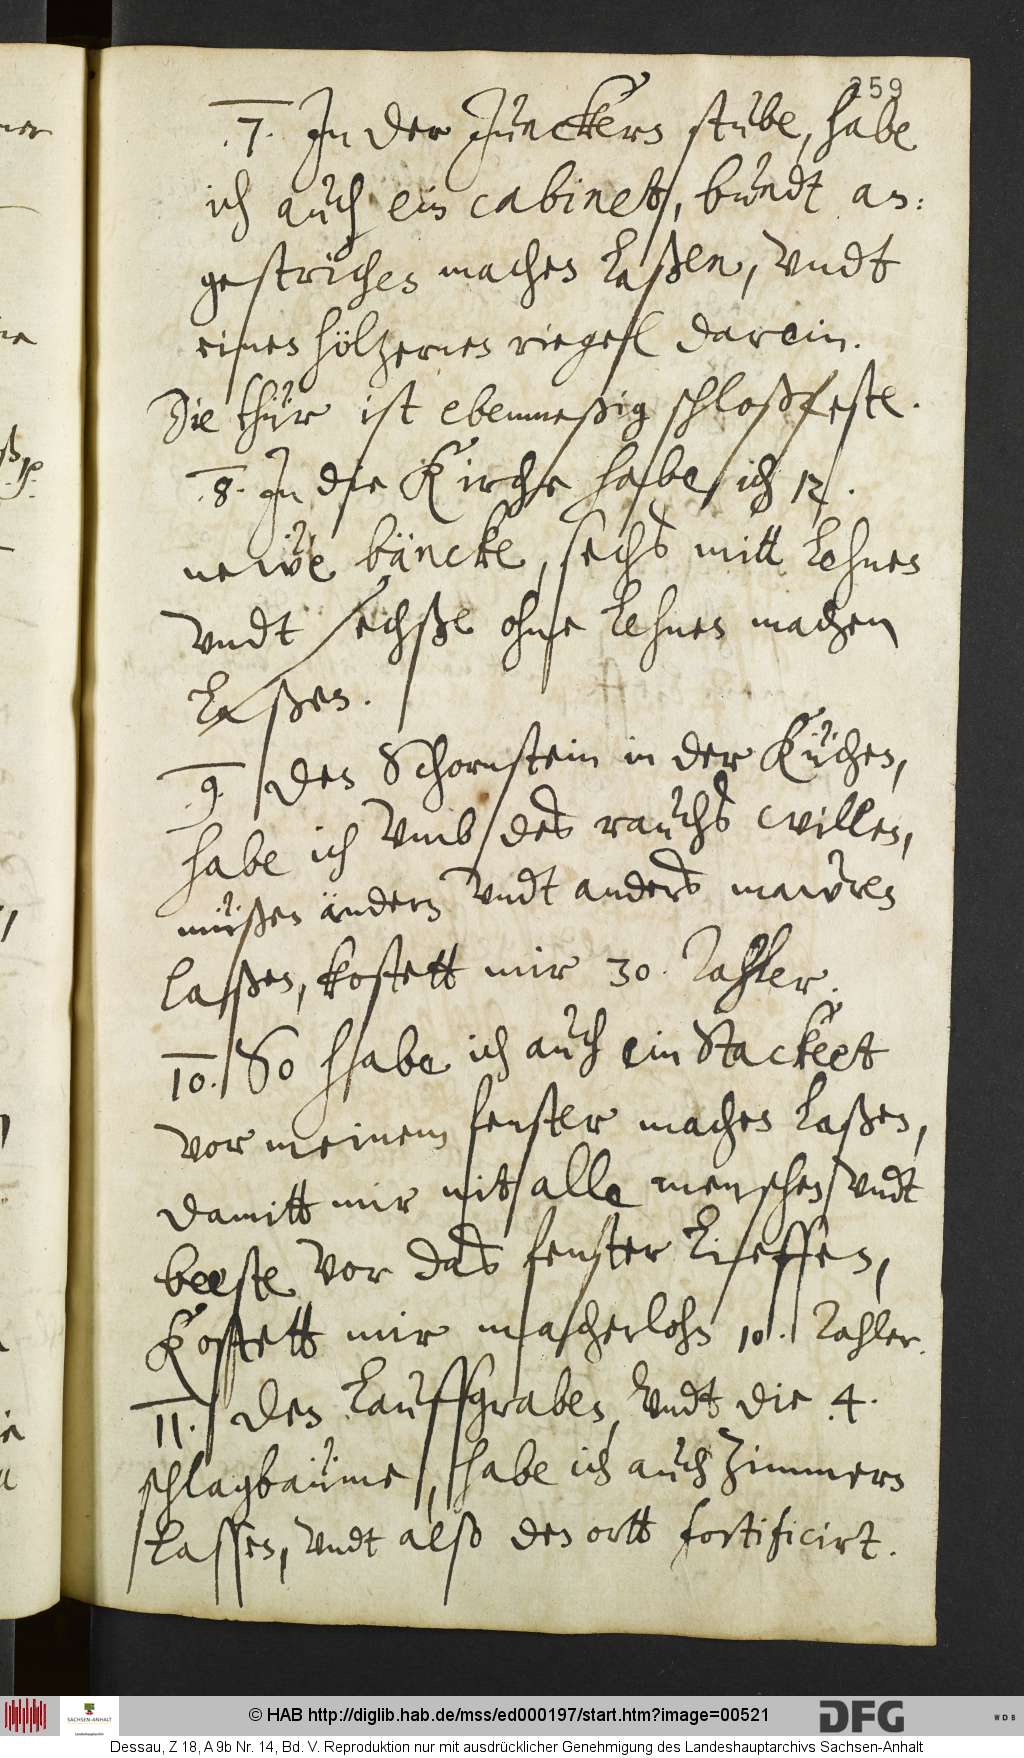 259
7. In der Junckern stube, habe
ich auch ein cabinett, bundt an:
gestrichen machen Laßen, vndt
einen höltzernen riegell darein.
Die thür ist ebenmeßig schloßfeste.
8. In die Kirche habe ich 12.
newe bäncke, sechs mitt Lehnen
vndt sechße ohne Lehnen machen
Laßen.
9. Den Schornstein in der Küchen,
habe ich vmb des rauchs willen,
müßen ändern vndt anders mawren
laßen, kostett mir 30. Tahler.
10. So habe ich auch ein Stackeet
vor meinem fenster machen Laßen,
damitt mir nit alle menschen vndt
beeste vor das fenster Lieffen,
Kostett mir macherlohn 10. Tahler.
11. Den Lauffgraben, vndt die 4.
schlagbäume, habe ich auch Zimmern
Lassen, vndt also den ortt fortificirt.
SACHSEN-ANHALT
Landeshauptarchiv
© HAB http://diglib.hab.de/mss/ed000197/start.htm?image=00521
DFG
WDB
Dessau, Z 18, A 9b Nr. 14, Bd. V. Reproduktion nur mit ausdrücklicher Genehmigung des Landeshauptarchivs Sachsen-Anhalt